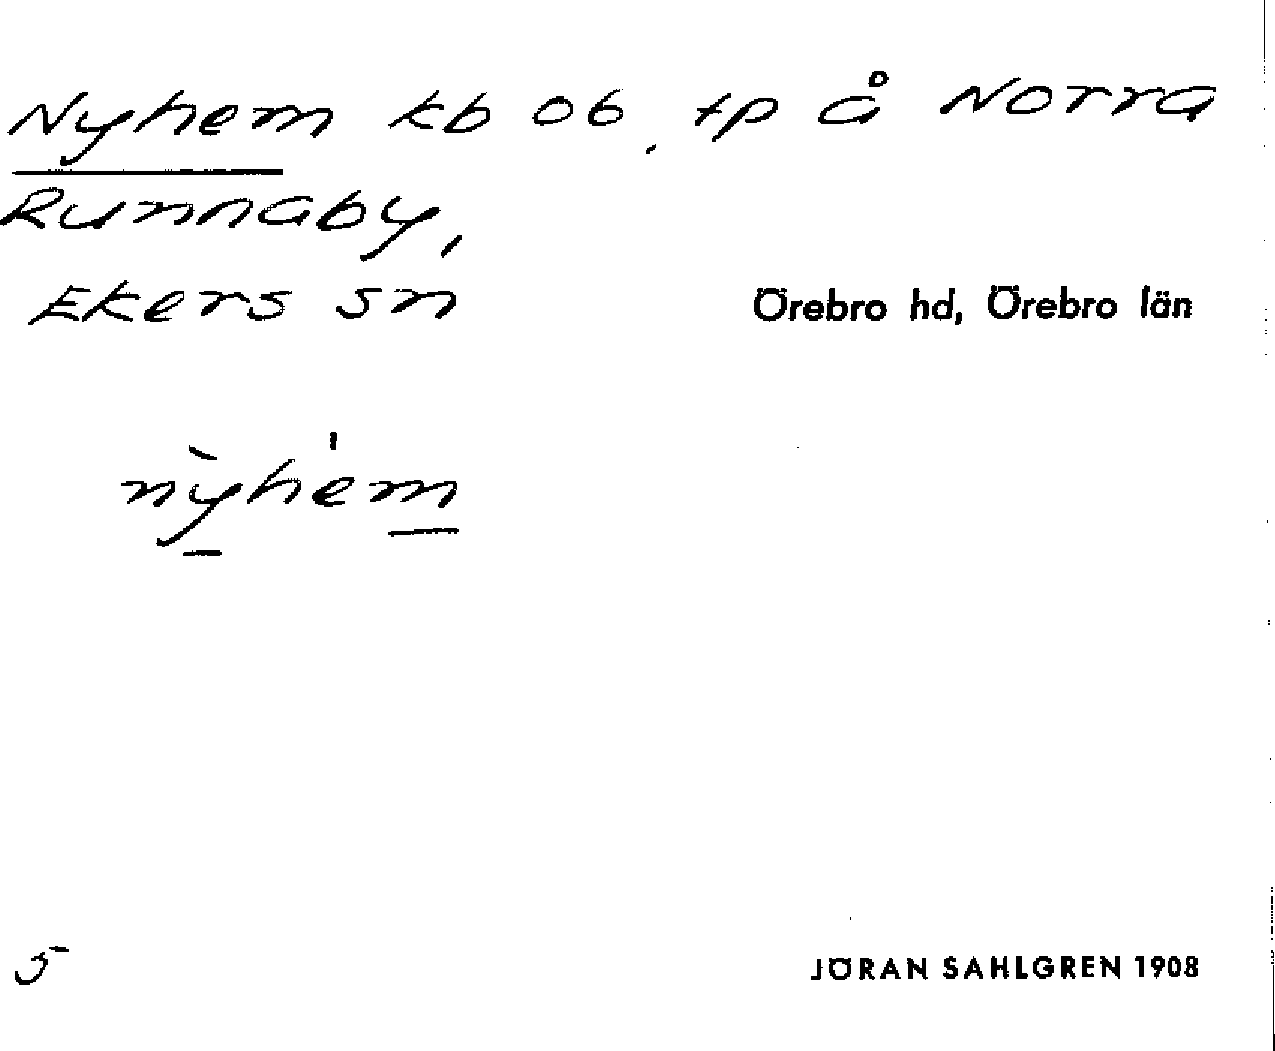 Nyhem kb 06, tp å Norra
Runnaby,
Ekers sn
Örebro hd, Örebro län
nỳhe̍m
5
JÖRAN SAHLGREN 1908